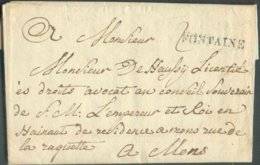 Monsieur
FONTAINE
Monsieur De Hauloÿ Licentié
és droits avocat au conseil Souverain
de S. M. L'empereur et Roi en
Hainaut de residence a mons rue de
la raquette
a Mons